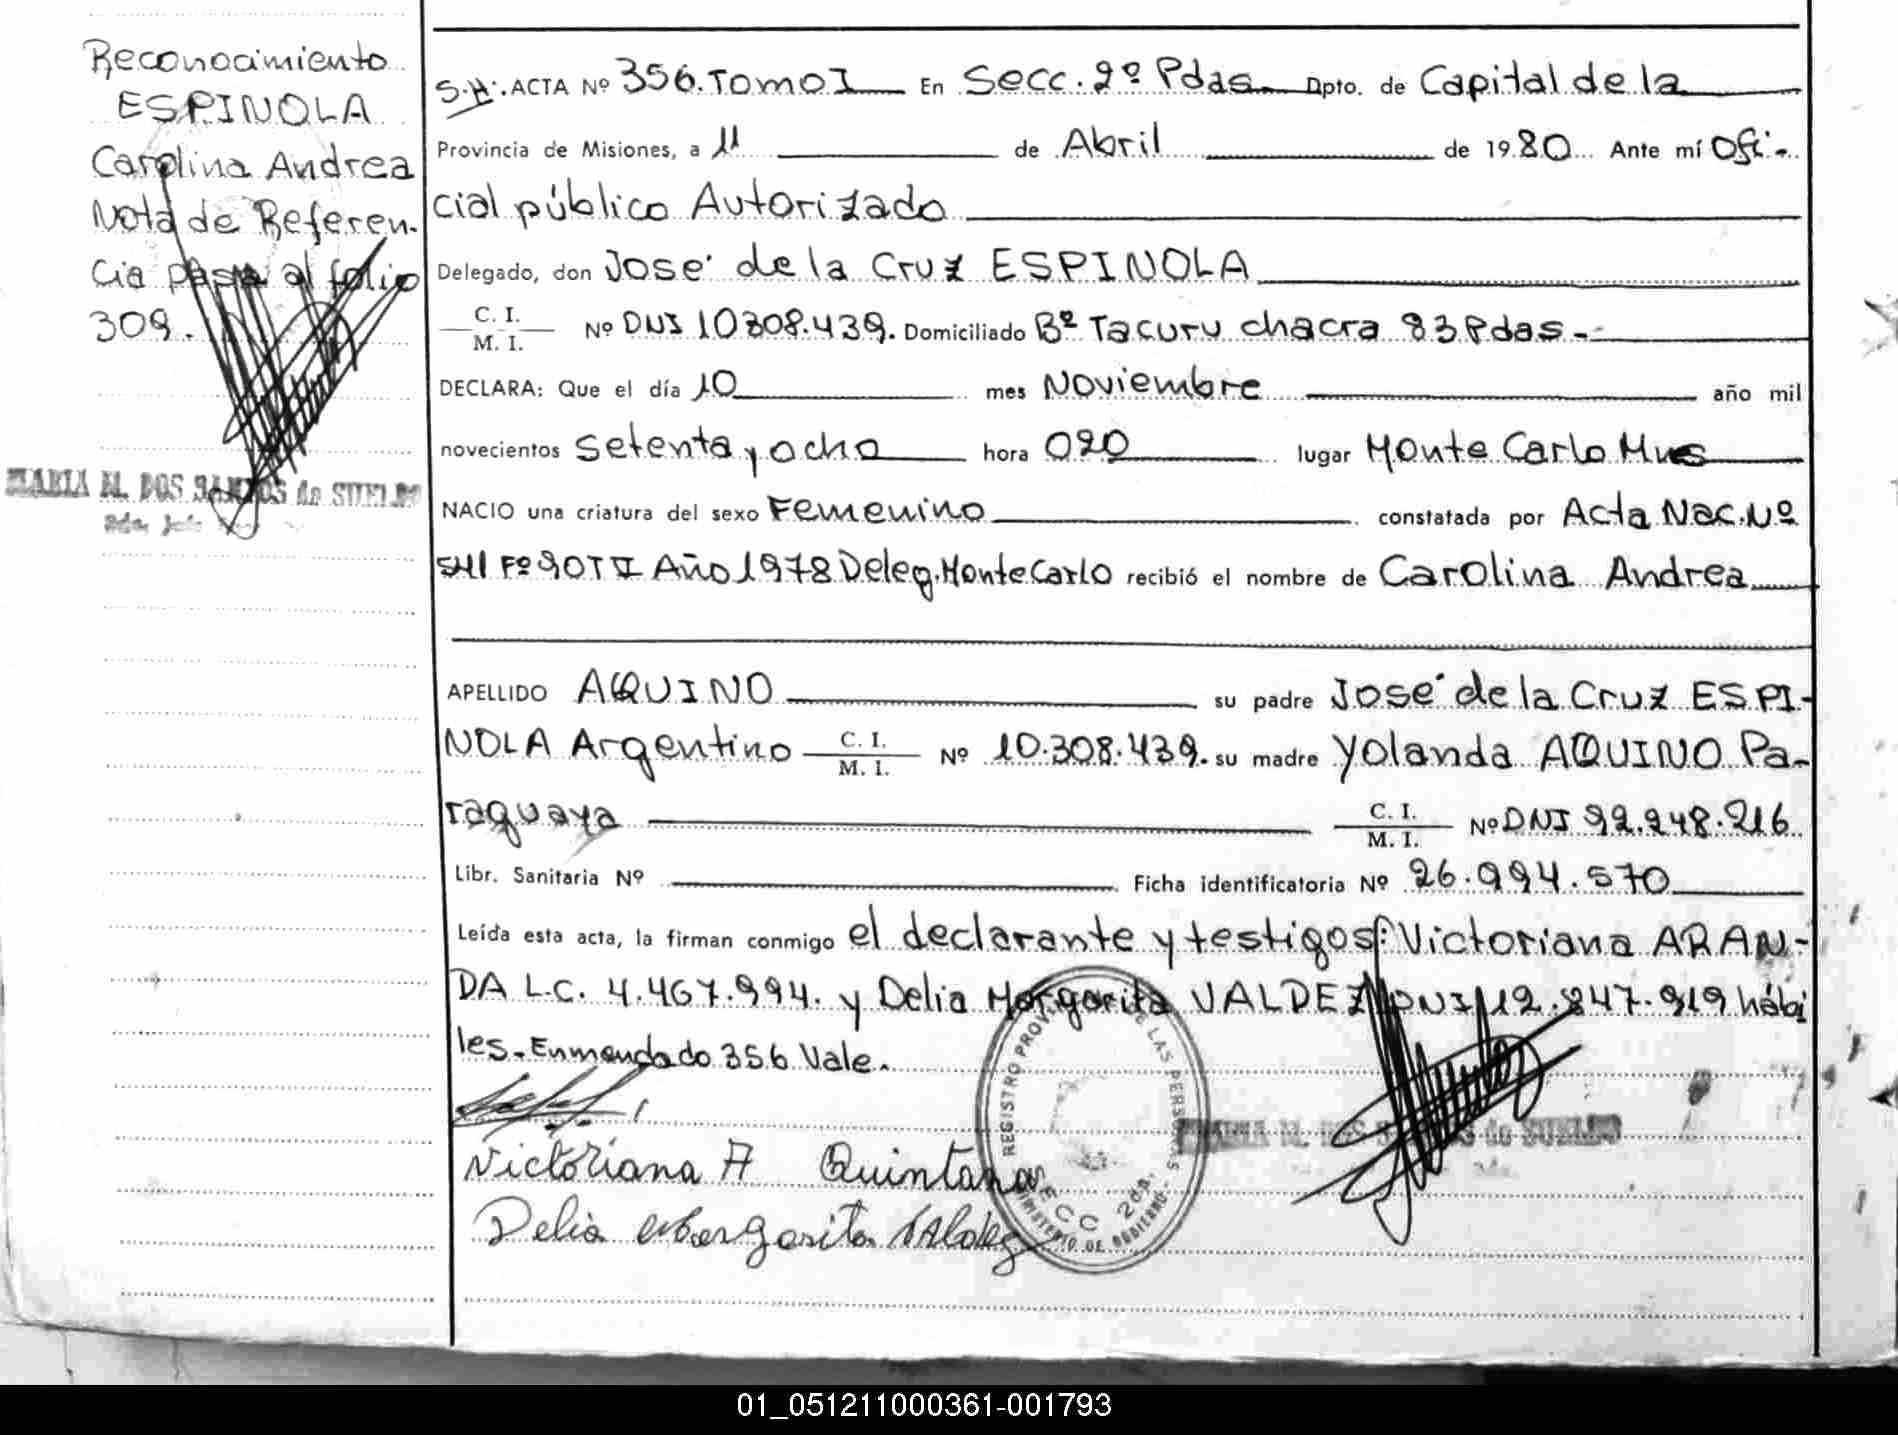 Reconocimiento
ESPINOLA
Carolina Andrea
Nota de Referen-
cia pasa al folio
309.
MARIA M. DOS SANTOS de SUELDO
S.H. ACTA Nº 356. Tomo I En Secc. 2º Pdas. Dpto. de Capital de la
Provincia de Misiones, a 11 de Abril de 1980 Ante mí Ofi-
cial público Autorizado
Delegado, don José de la Cruz ESPINOLA
C. I.
M. I. Nº DNI 10308.439. Domiciliado Bº Tacuru chacra 83 Pdas.-
DECLARA: Que el día 10 mes Noviembre año mil
novecientos setenta y ocho hora 020 lugar Monte Carlo Mnes
NACIO una criatura del sexo Femenino constatada por Acta Nac. Nº
541 Fº 90 T II Año 1978 Deleg. Monte Carlo recibió el nombre de Carolina Andrea
APELLIDO AQUINO su padre José de la Cruz ESPI-
NOLA Argentino C. I. M. I. Nº 10.308.439. su madre Yolanda AQUINO Pa-
raguaya C. I. M. I. Nº DNI 92.248.216
Libr. Sanitaria Nº Ficha identificatoria Nº 26.994.570
Leída esta acta, la firman conmigo el declarante y testigos: Victoriana ARAN-
DA L.C. 4.467.994. y Delia Margarita VALDEZ DNI 12.847.919 hábi
les.-Enmendado 356 Vale.-
Victoriana A Quintana
Delia Margarita Valdez
REGISTRO PROV DE LAS PERSONAS
SECC 2da.
MINISTERIO DE GOBIERNO
MARIA M. DOS SANTOS de SUELDO
01_051211000361-001793